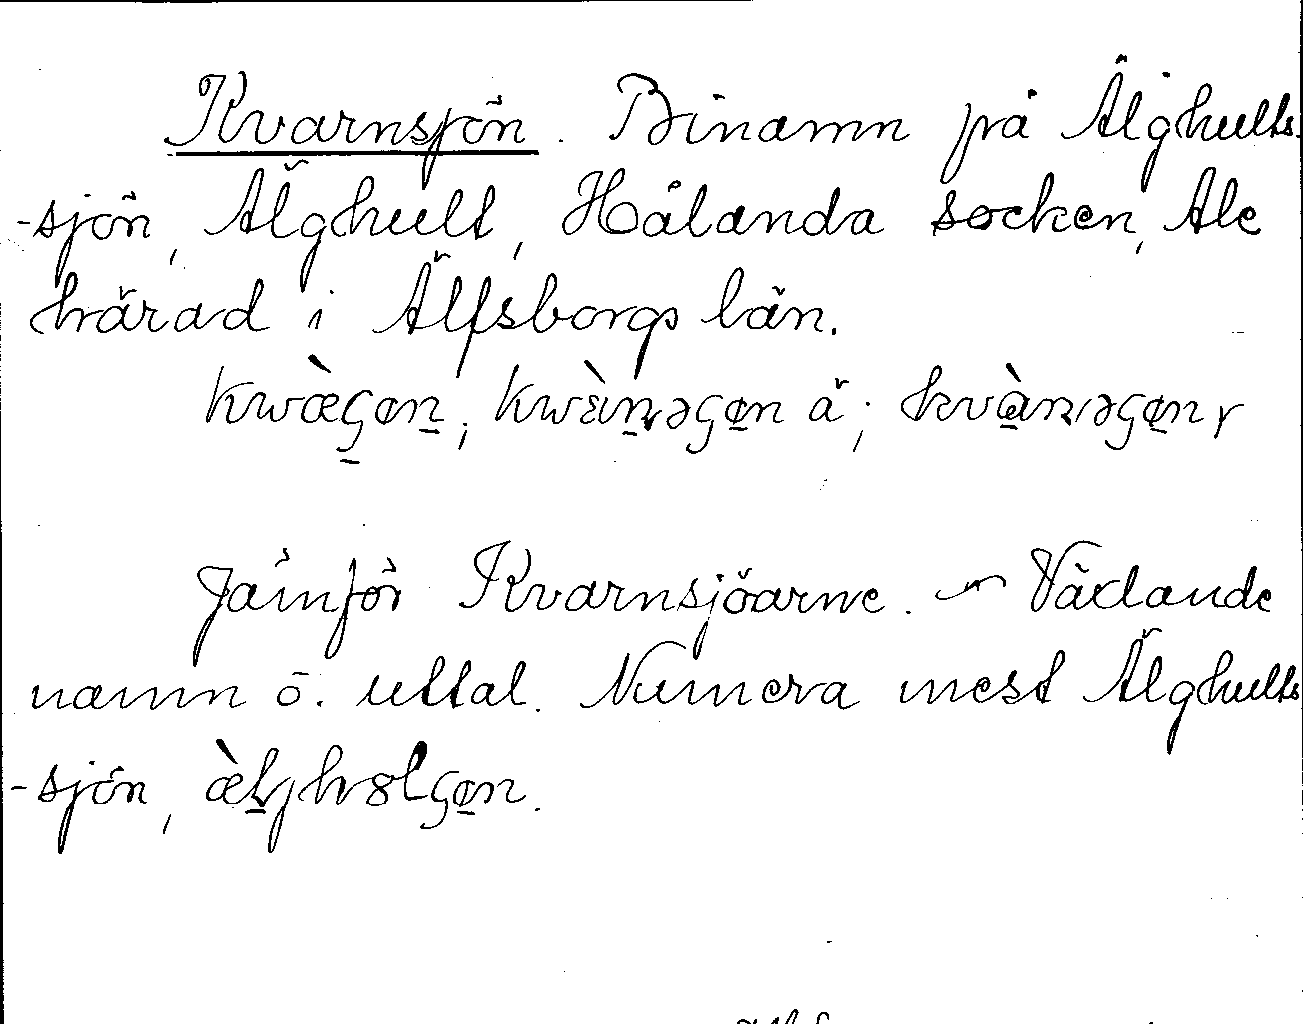 Kvarnsjön. Binamn på Älghults-
-sjön, Älghult, Hålanda socken, Ale
härad i Älfsborgs län.
kwæ̀ʂøn, kwɛ̀ìnəʂøn ä; kvànəʂøn,
Jämför Kvarnsjöarne. – Växlande
namn o. uttal. Numera mest Älghults
-sjön, æ̀ljhȣlʂøn.